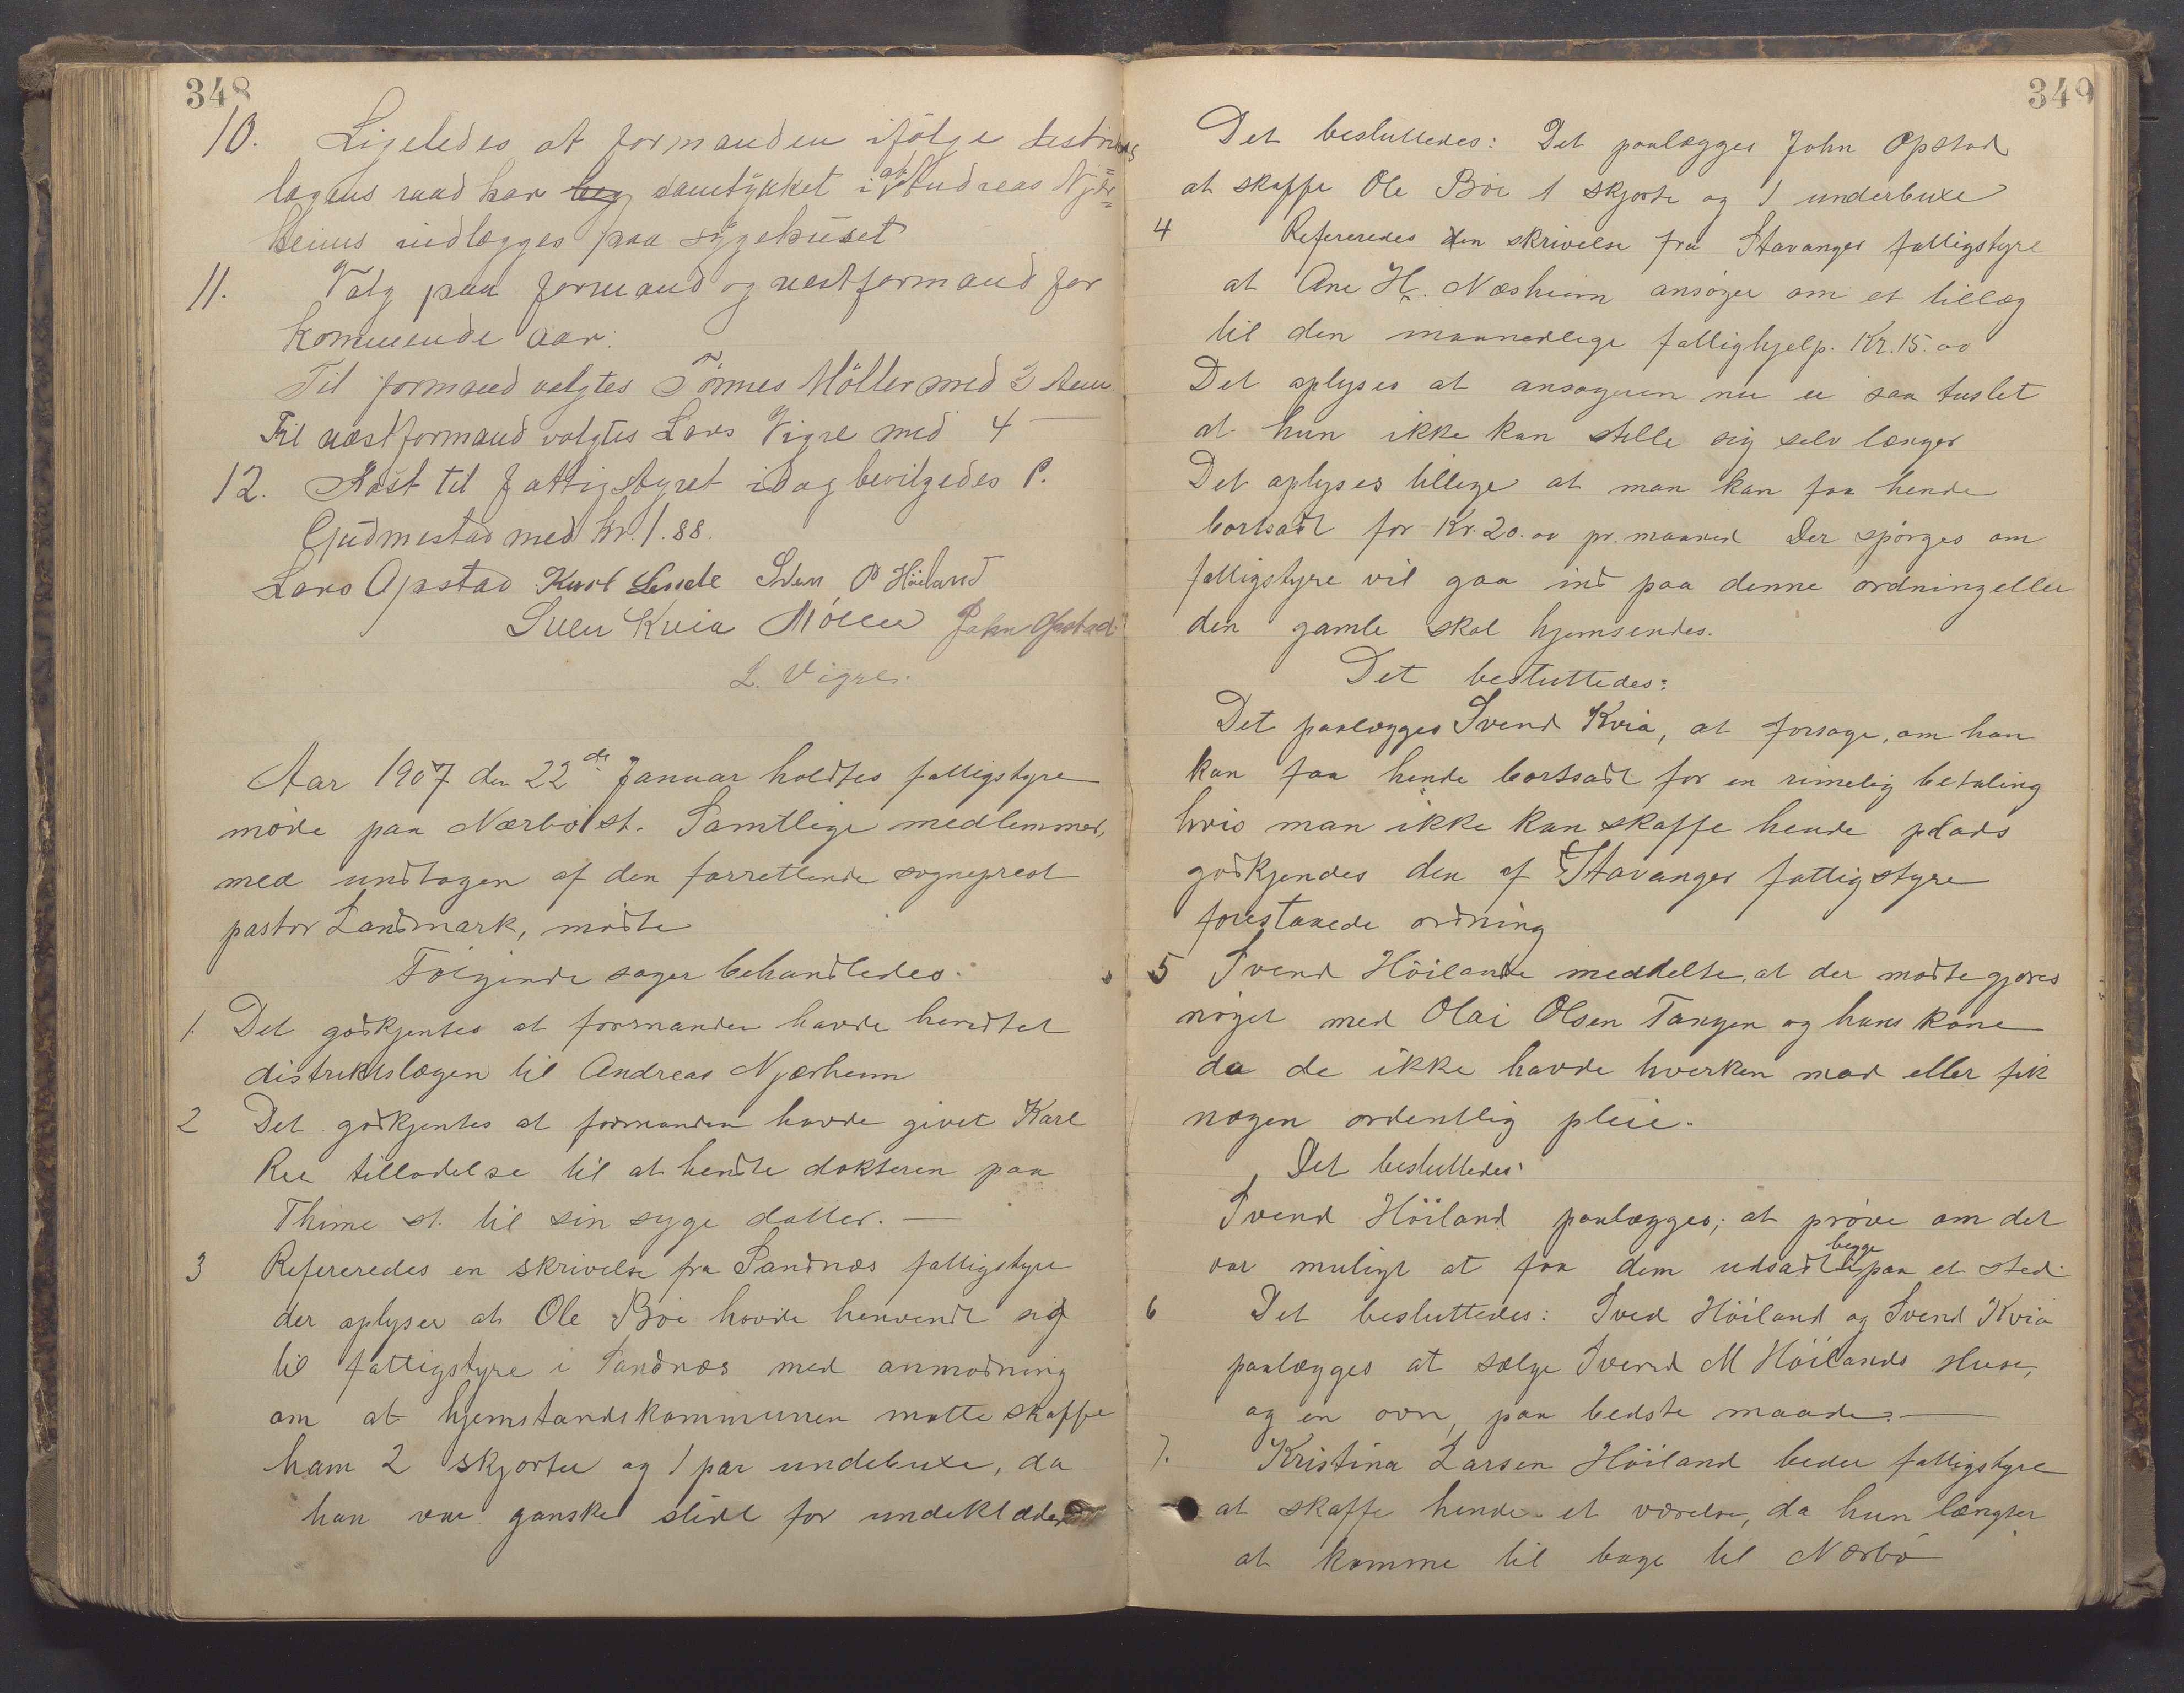 348
10. Ligeledes at formanden ifölge destrikts
lægens raad har samtykket i at Andreas Njær=
heims indlægges paa sygehuset
11. Valg paa formand og næstformand for
kommende aar.
Til formand valgtes Tönnes Möller med 3 stem
Til næstformand valgtes Lars Vigre med 4 —
12. Kost til fattigstyret idag bevilgedes P.
Gudmestad med kr. 1.88.
Lars Opstad Kurt Lende Sven P Höiland
Sven Kvia Möller John Opstad.
L. Vigre.
Aar 1907 den 22de Januar holdtes fattigstyre
møde paa Nærbø st. Samtlige medlemmer,
med undtagen af den forrettende sogneprest
pastor Landmark, mødte
Følgende sager behandledes.
1. Det godkjentes at formanden havde hendtet
distriktslægen til Andreas Njærheim
2 Det godkjentes at formanden havde givet Karl
Ree tilladelse til at hendte dokteren paa
Thime st. til sin syge datter. —
3 Refereredes en skrivelse fra Sandnæs fattigstyre
der oplyser at Ole Bøe havde henvendt sig
til fattigstyre i Sandnæs med anmodning
om at hjemstandskommunen motte skaffe
ham 2 skjorter og 1 par undebuxe, da
han var ganske slidt for undeklæder
349
Det besluttedes: Det paalægges John Opstad
at skaffe Ole Bøe 1 skjorte og 1 underbuxe
4 Refereredes en skrivelse fra Stavanger fattigstyre
at Ane H. Næsheim ansøger om et tillæg
til den maanedlege fattighjelp. Kr. 15.00
Det oplyses at ansøgeren nu er saa tuslet
at hun ikke kan stelle sig selv længer
Det oplyses tillige at man kan faa hende
bortsadt for Kr. 20.00 pr. maaned Der spørges om
fattigstyre vil gaa ind paa denne ordning eller
den gamle skal hjemsendes.
Det besluttedes:
Det paalægges Svend Kvia, at forsøge, om han
kan faa hende bortsadt for en rimelig betaling
hvis man ikke kan skaffe hende plads
godkjendes den af Stavanger fattigstyre
forestaaede ordning
5 Svend Höilande meddelte, at der modte gjøres
noget med Olai Olsen Tangen og hans kone
da de ikke havde hverken mad eller fik
nogen ordentlig pleie.
Det besluttedes:
Svend Höiland paalægges; at prøve om det
var muligt at faa dem udsadt begge paa et sted.
6 Det besluttedes: Sved Höiland og Svend Kvia
paalægges at sælge Svend M Höilands Huse,
og en ovn, paa bedste maade. —
7. Kristina Larsen Höiland beder fattigstyre
at skaffe hende et værelse, da hun længter
at komme til bage til Nærbø